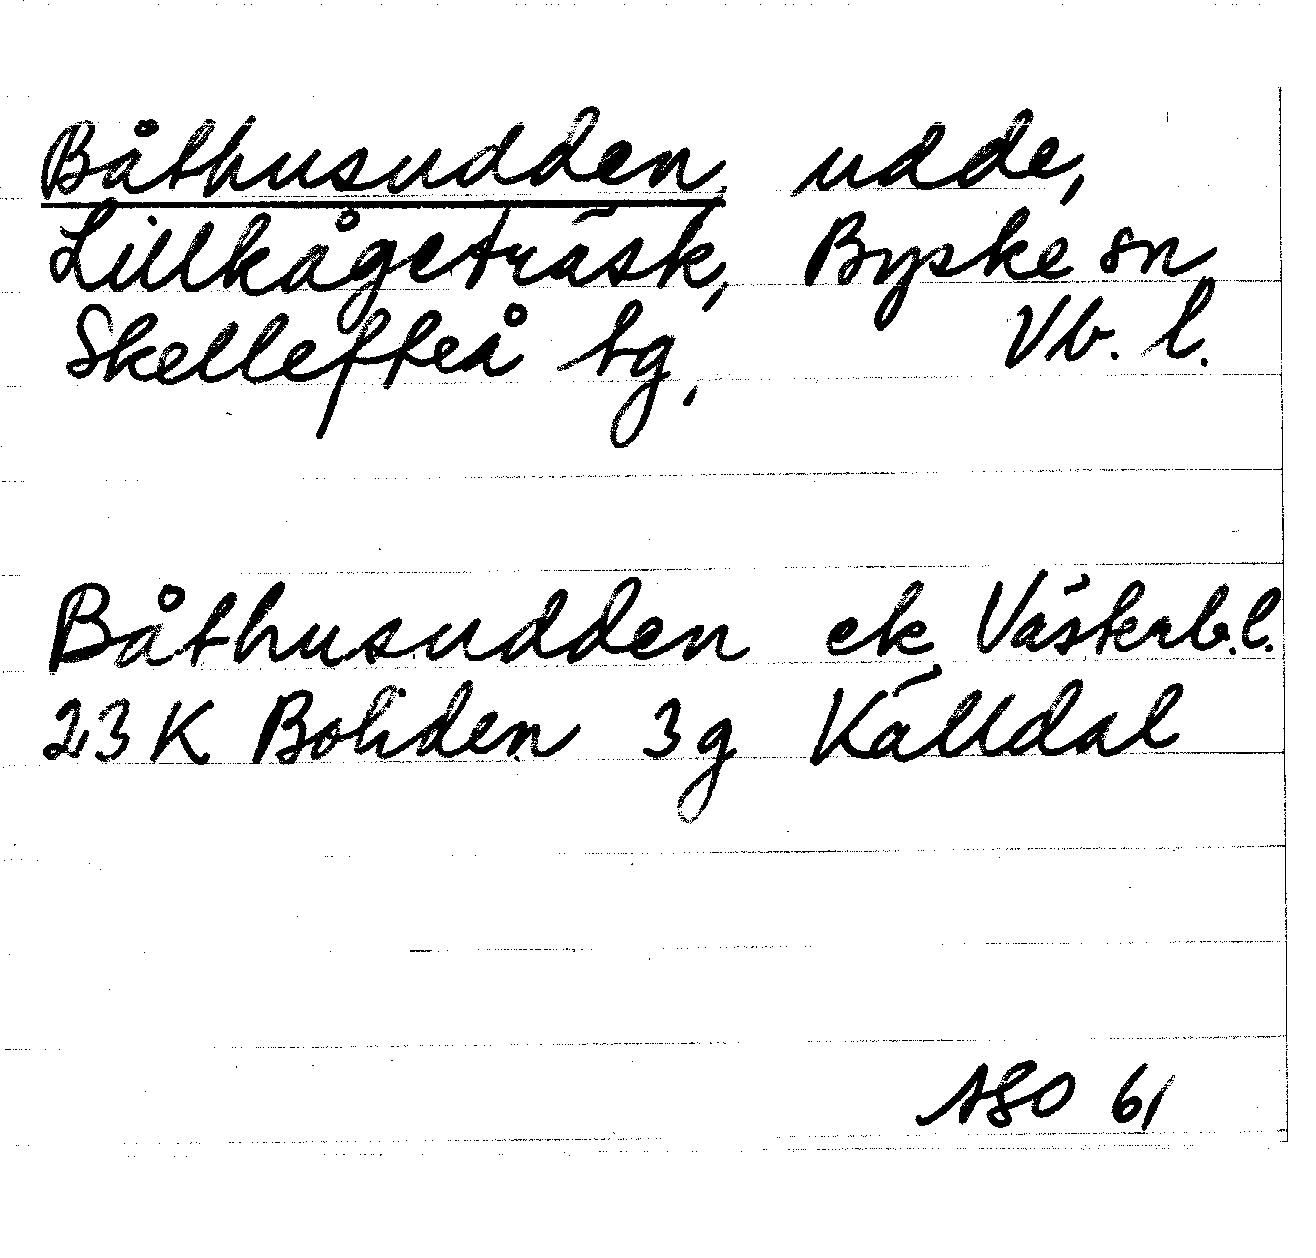 Båthusudden, udde,
Lillkågeträsk, Byske sn,
Skellefteå tg, Vb. l.
Båthusudden ek, Västerb.l.
23 K Boliden 3g Källdal
ASO 61